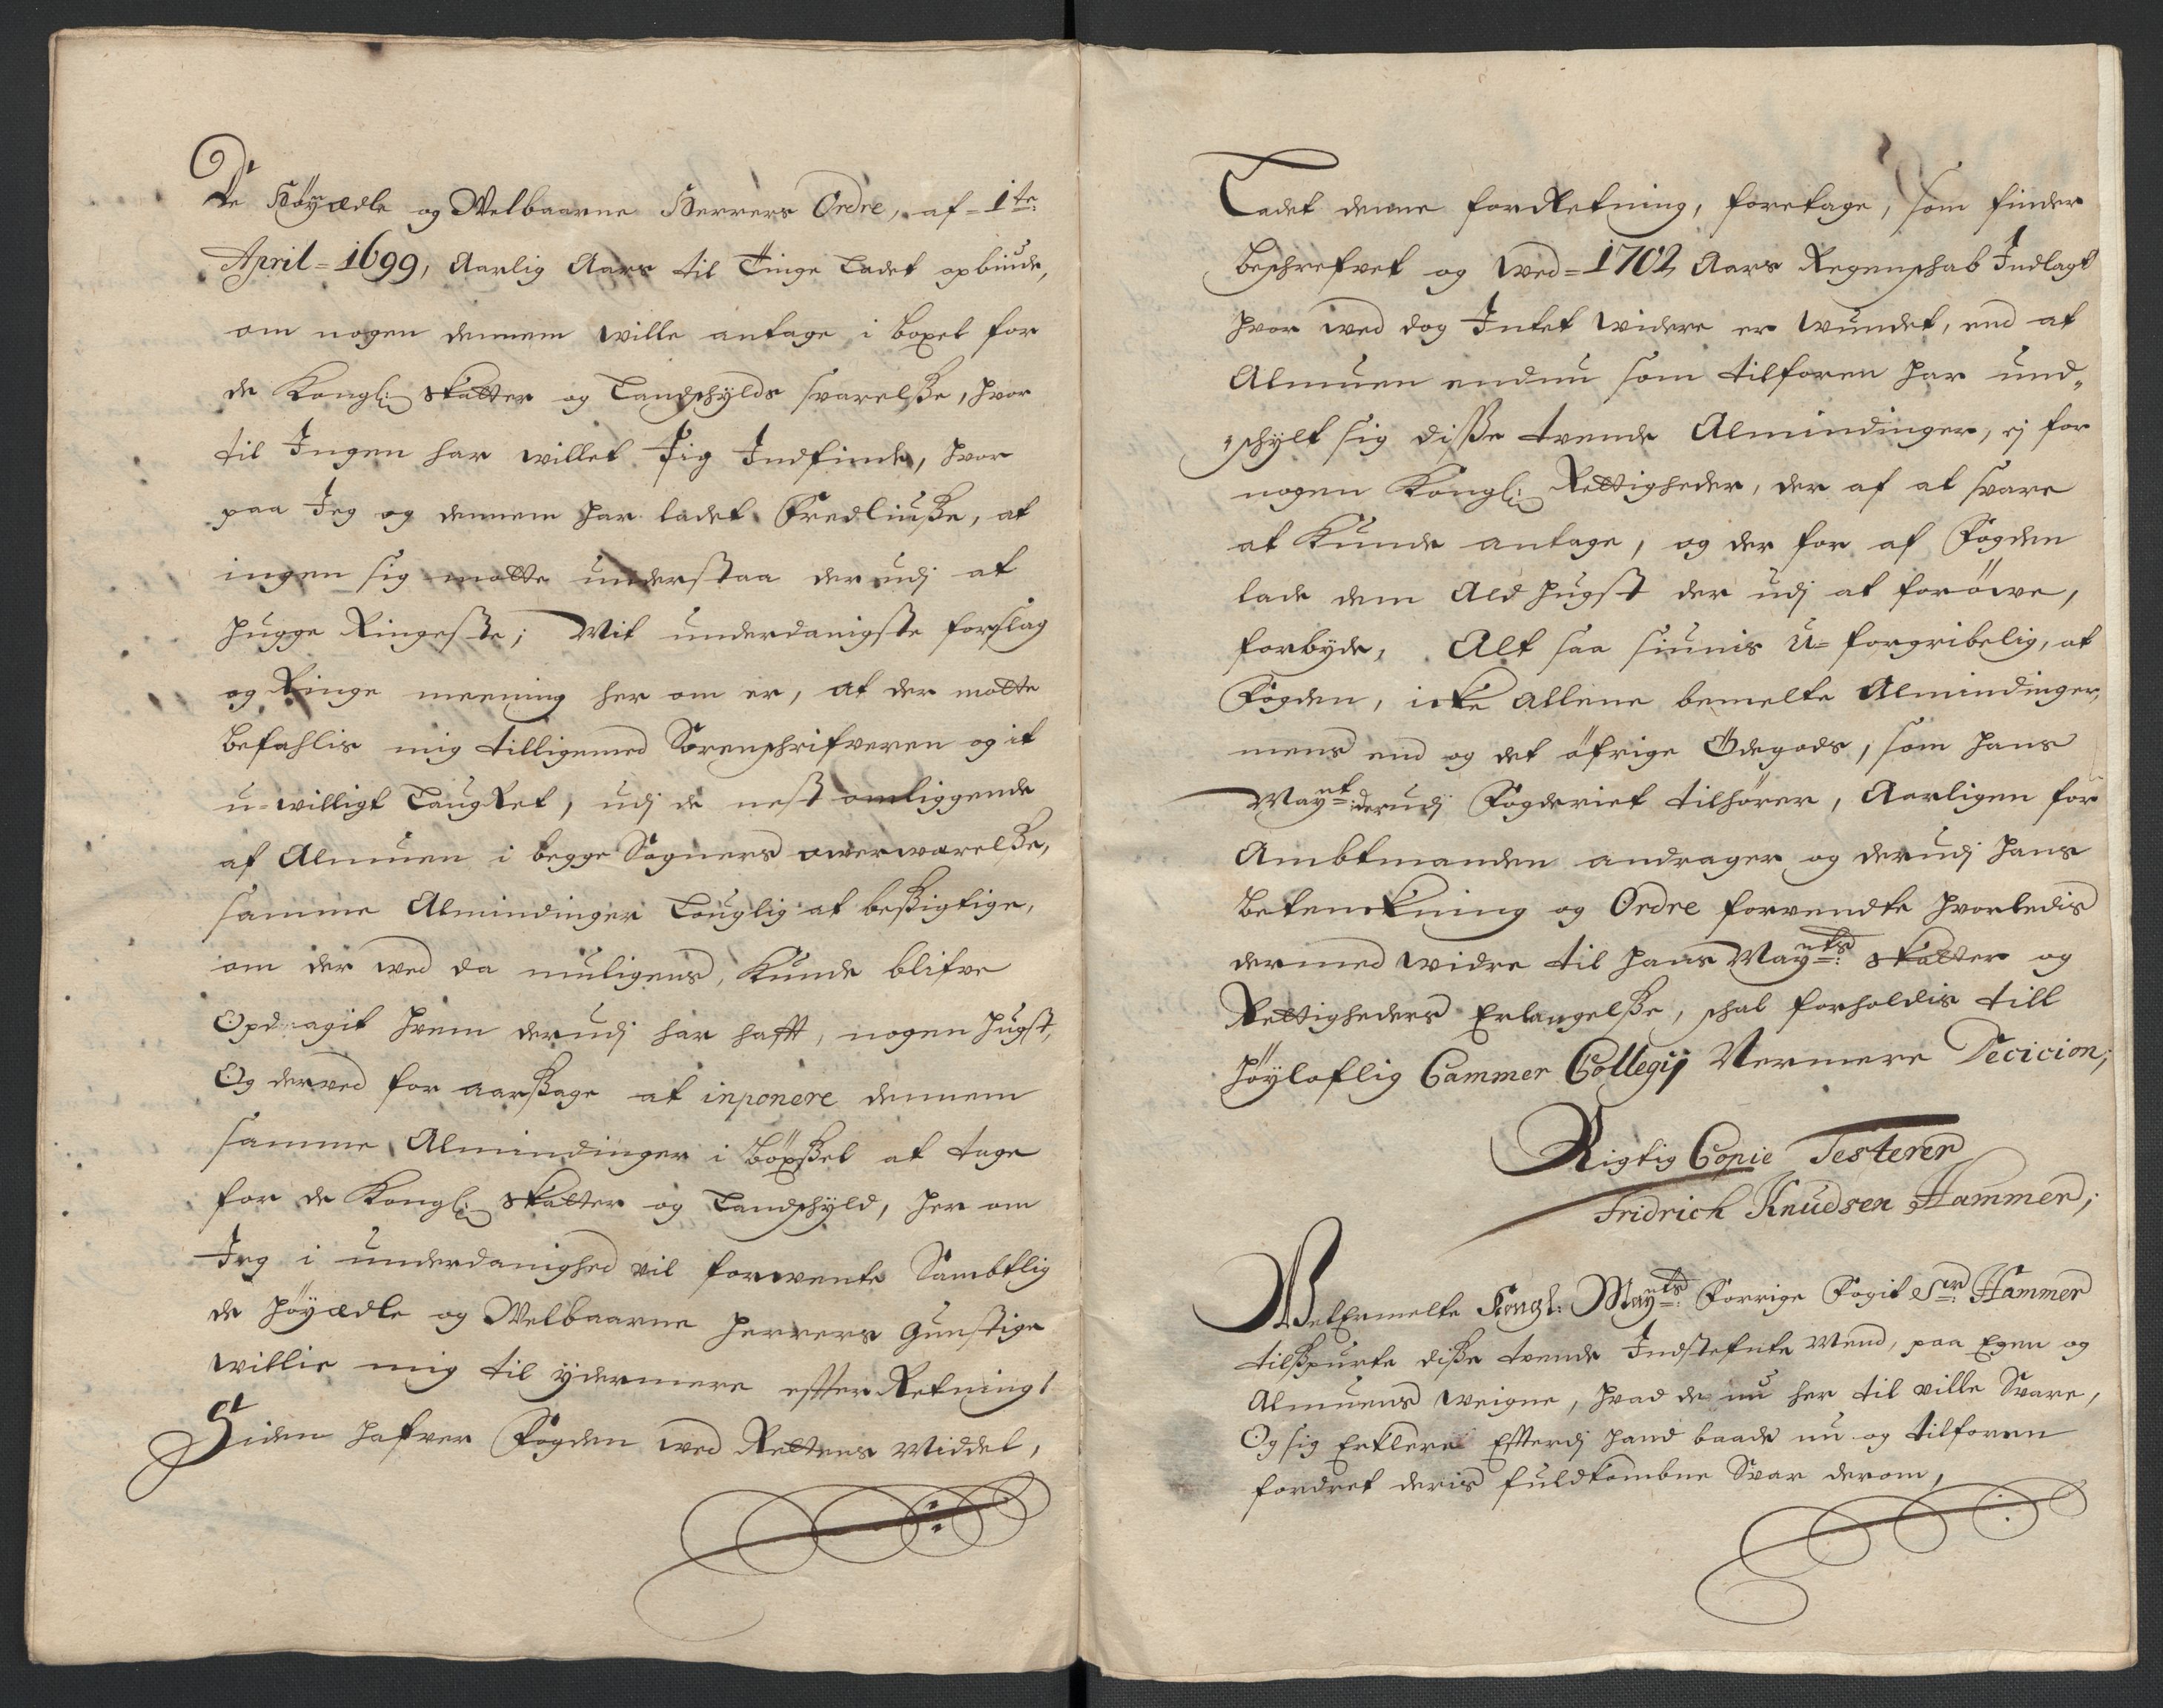 De Höÿædle og Welbaarne Herrers Ordre, af = 1te
April = 1699, Aarlig Aars til Tinge ladet opbiude,
om nogen dennem wille antage i boxel for
de Kongl: skatter og Landschÿlds svarelsse, hvor
til Ingen har willet sig Indfinde, hvor
paa Jeg og dennem har ladet Fredliusse, at
ingen sig motte understaa der udj at
hugge Ringeste; Mit underdanigste forslag
og Ringe meening her om er, at der motte
befahlis mig tilligemed Sorenschrifveren og it
u-willigt LaugRet, udj de nest omliggende
af Almuen i begge Sogners owerwærelsse,
samme Almindinger Louglig at bessigtige,
om der wed da muligens, Kunde blifve
Opdragit hvem derudj har hafft, nogen hugst,
Og derved for aarssage at inponere dennem
samme Almindinger i böxssel at tage
for de Kongl: skatter og Landschÿld, her om
Jeg i underdanighed vil forwente Sambtlig
de höÿædle og Welbaarne herrers Gunstige
willie mig til ÿdermere efterRetning!
Siden hafver Fogden wed Rettens Middel,
Ladet denne forRetning, foretage, som finder
beschrefvet og wed = 1702 Aars Regenschab Indlagt
hvor wed dog Intet widere er wundet, end at
Almuen endnu som tilforen har und„
„schÿlt sig disse trende Almindinger, ej for
nogen Kongl: Rettigheder, der af at svare
at Kunde antage, og der for af Fogden
lade dem Ald hugst der udj at foröwe,
forbÿde, Alt saa siunis u-forgribelig, at
Fogden, icke allene bemelte Almindinger,
mens end og det öfrige Ödegods, som hans
Maÿnt: derudj Fogderiet tilhörer, Aarligen for
Ambtmanden andrager og derudj hans
betenckning og Ordre forvendte hvorledis
dermed widre til hans Maÿnts: skatter og
Rettigheders Erlangelsse, schal forholdis till
höÿloflig Cammer Collegij Nermere Decicion;
Rigtig Copie Testerer
Fridrich Knudsen Hammer;
WelErmelte Kongl: Maÿnts: Forrige Fogit Sr: Hammer
tilsspurte disse trende Indstefnte Mend, paa Egen og
Almuens weigne, hvad de nu her til wille Svare,
Og sig Erklere Efterdj hand baade nu og tilforen
fordret deris fuldkombne Svar derom,